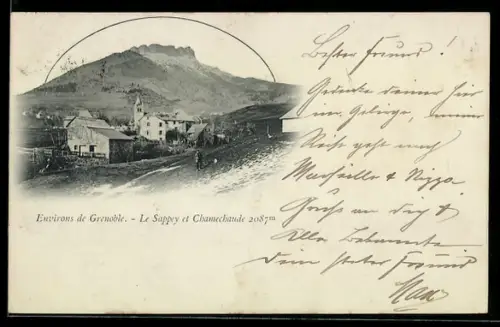 Environs de Grenoble. - Le Sappey et Chamechaude 2087m
Bester Freund!
Gedenke deiner hier
im Gebirge, meine
Reise geht nach
Marseille & Nizza
Gruss an dich &
Alle Bekannte
Dein steter Freund
Max